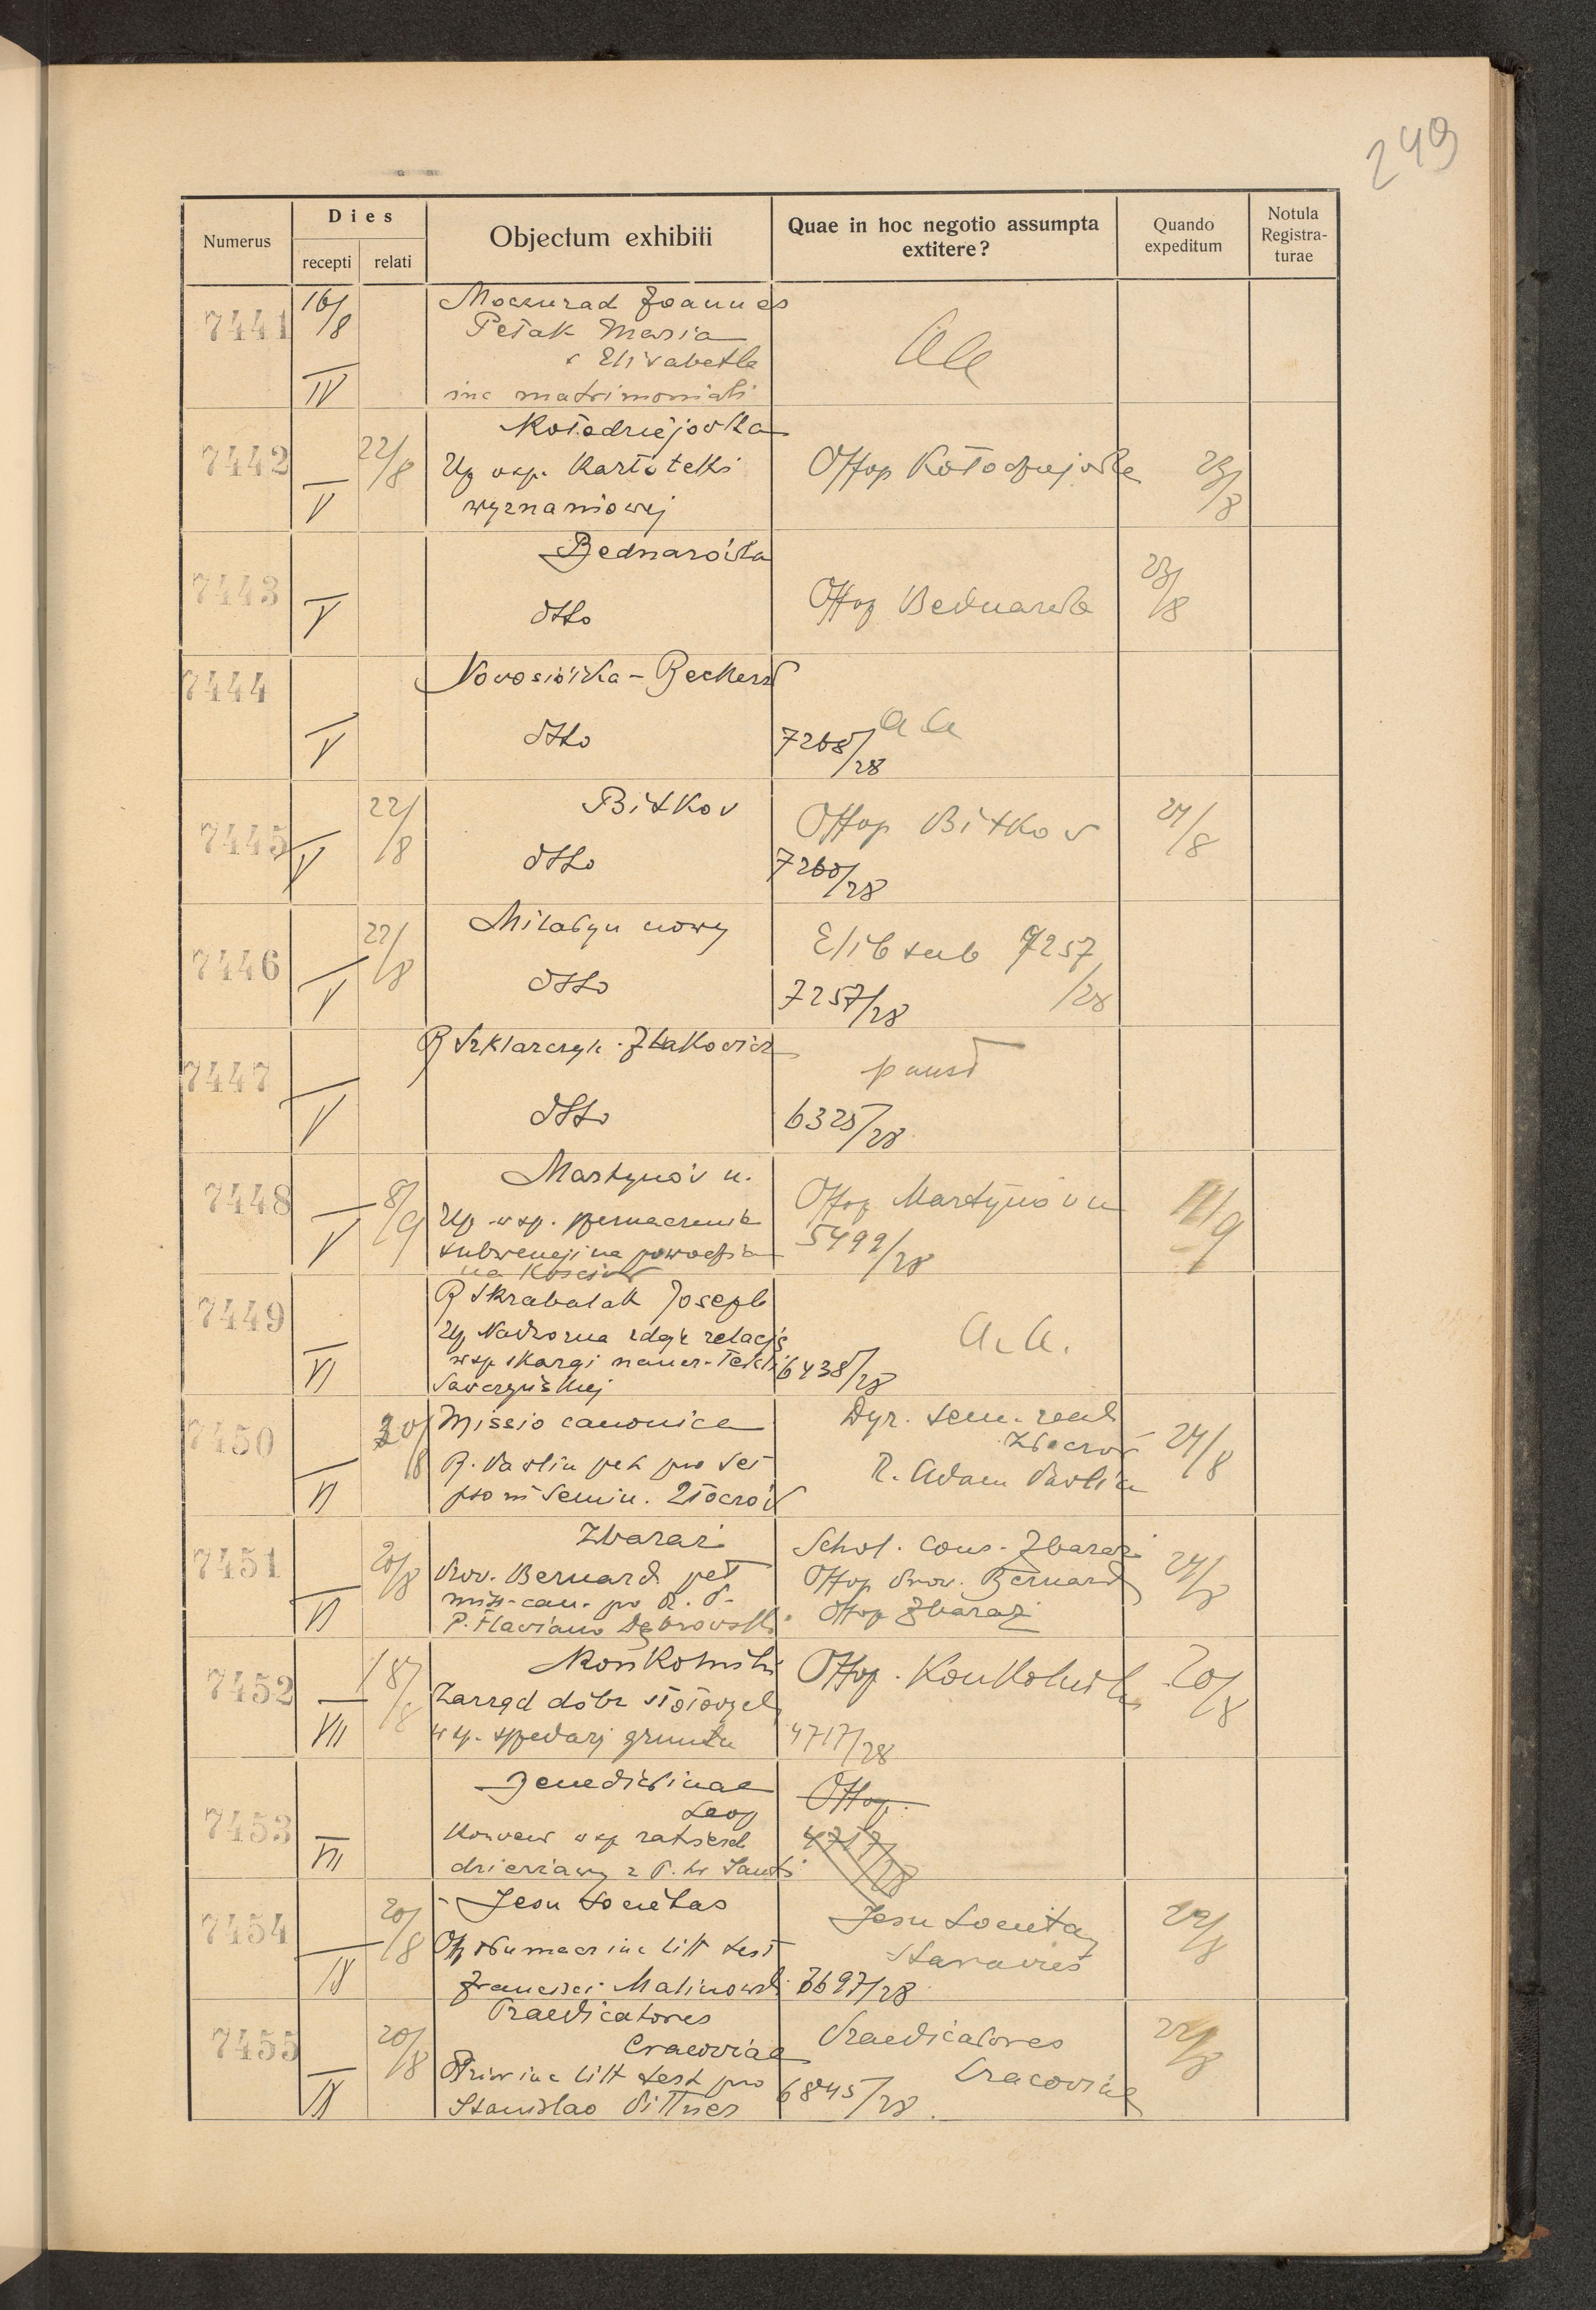 249
Numerus
Dies
recepti
relati
Objectum exhibiti
Quae in hoc negotio assumpta
extitere?
Quando
expeditum
Notula
Registra-
turae
7441
16/8
IV
Moczurad Joannes
Petak Maria
v Elisabetha
inc matrimoniali
aa
7442
V
22/8
Kołodziejówka
Up wsp. Kartoteki
wyznaniowej
Offop Kołodziejówka
23/8
7443
V
Bednarówka
dtto
Offop Bednarówka
23/8
7444
V
Nowosiółka - Beckersd
dtto
aa
7268/28
7445
V
22/8
Bitków
dtto
Offop Bitków
7260/28
24/8
7446
V
22/8
Milatyn nowy
dtto
Elib sub 7257
/28
7257/28
7447
V
R Szklarczyk
dtto
6325/28
7448
V
8/9
Martynów n.
Up wsp.
subwencji na
na Kościół
Offop Martynów n
5499/28
11/9
7449
VI
R Skrabalak Joseph
Up Nadworna zdaje relację
wsp skargi naucz. Tekli
Sawczyńskiej
a. a.
6438/28
7450
VI
20/8
Missio canonica
R. Pavlin pet pro se
Semin. Złoczów
Dyr. sem. real
Złoczów
R. Adam Pavlin
24/8
7451
VI
20/8
Zbaraż
Prov. Bernard pet
miss. can. pro R. P.
P. Flaviano Dąbrowski
Schol. Cons. Zbaraż
Offop Prov. Bernard
Offop Zbaraż
24/8
7452
VII
18/8
Końkolniki
Zarząd dóbr stołowych
wsp. sprzedaży gruntu
Offop. Konkolniki
4717/28
20/8
7453
VII
Benedictinae
Leop
Konwen wsp zatwierd
dzierżawy z
Offop.
4717/28
7454
IX
20/8
Jesu Societas
inc litt test
Francisci Malinowski
Jesu Societas
Starawieś
3697/28
22/8
7455
IX
20/8
Praedicatores
Cracoviae
Prior inc litt test pro
Stanislao Pittner
Praedicatores
Cracoviae
6845/28
22/8